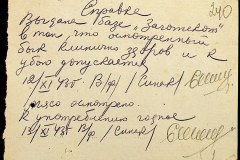 240
Справка
Выдана базе „Заготскот"
в том, что осмотренный
бык клинически здоров и к
убою допускается
12/XI 43г. В/ф /Синак/
Мясо осмотрено.
К употреблению годное
13/XI 43г. В/ф /Синак/